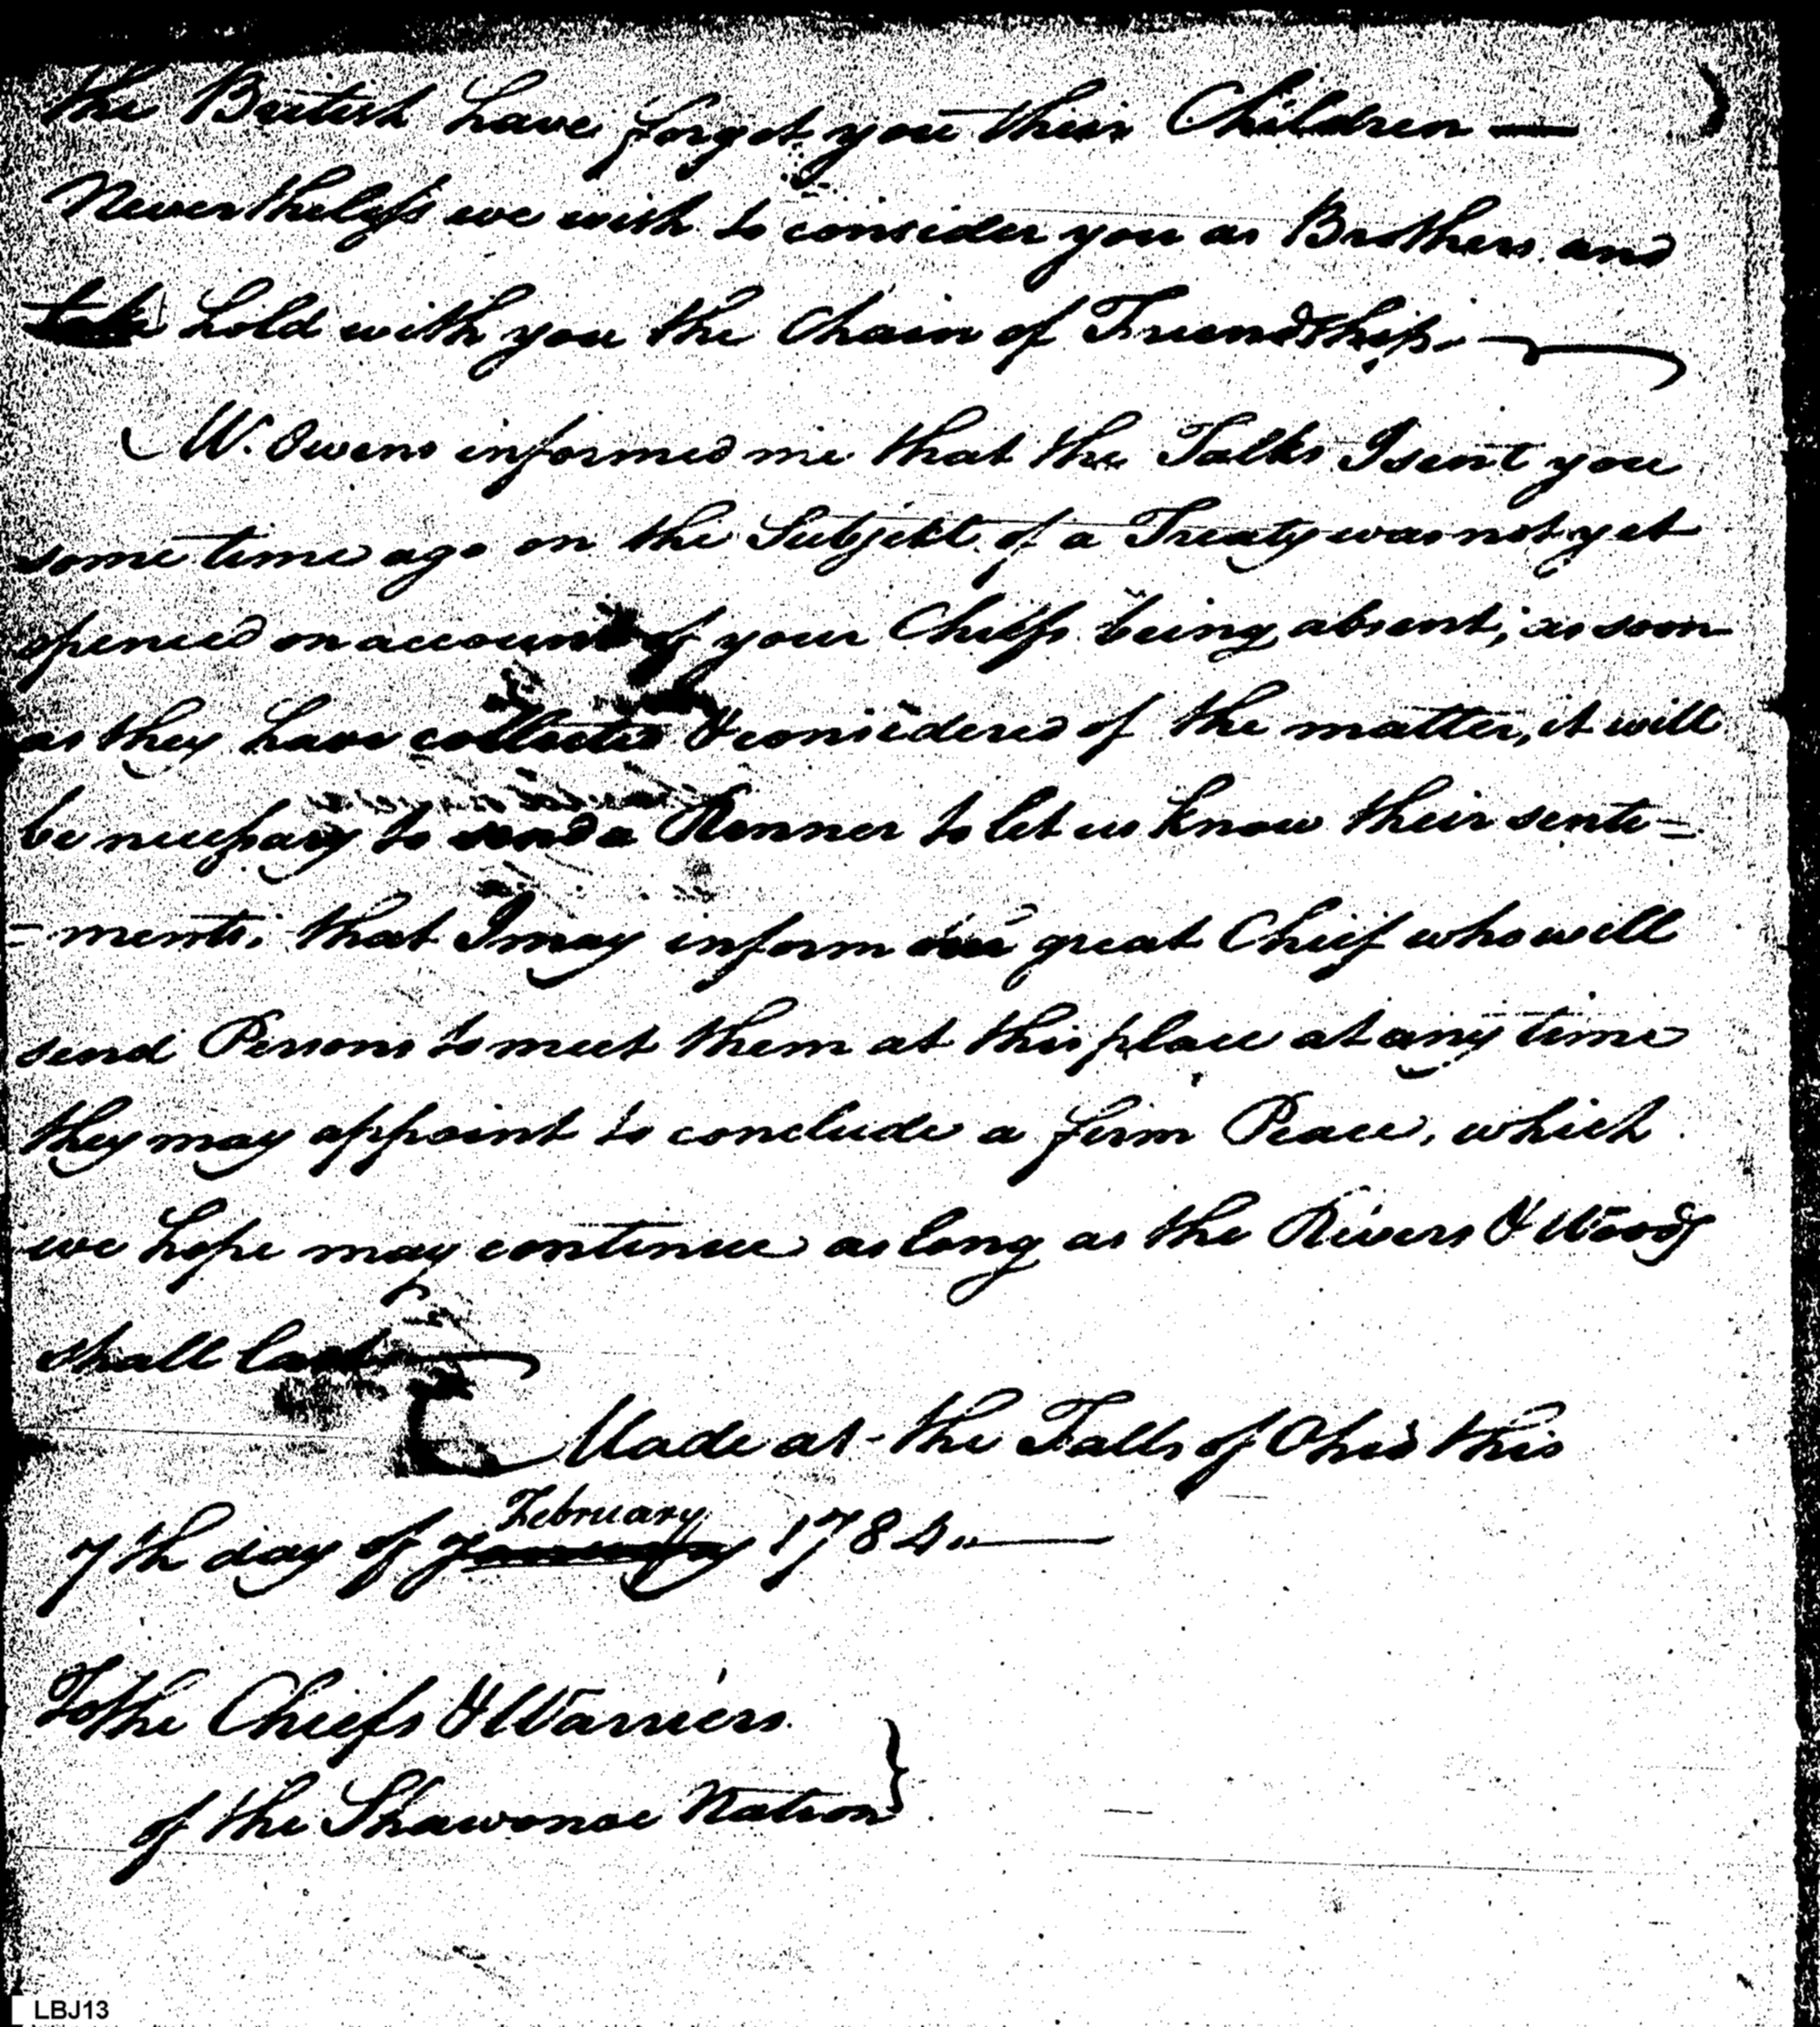 the British have forgot you their Children —
Nevertheless we wish to consider you as Brothers and
take hold with you the Chain of Friendship.
W. Owens informed me that the Talks I sent you
some time ago on the Subject of a Treaty was not yet
opened on account of your Chiefs being absent; as soon
as they have collected & considered of the matter, it will
be necessary to send a Runner to let us know their senti=
=ments, that I may inform our great Chief who will
send Persons to meet them at this place at any time
they may appoint to conclude a firm Peace, which
we hope may continue as long as the Rivers & Woods
shall last
Made at the Falls of Ohio this
February
7th day of January 1784.
To the Chiefs & Warriers
of the Shawonoe Nation
LBJ13